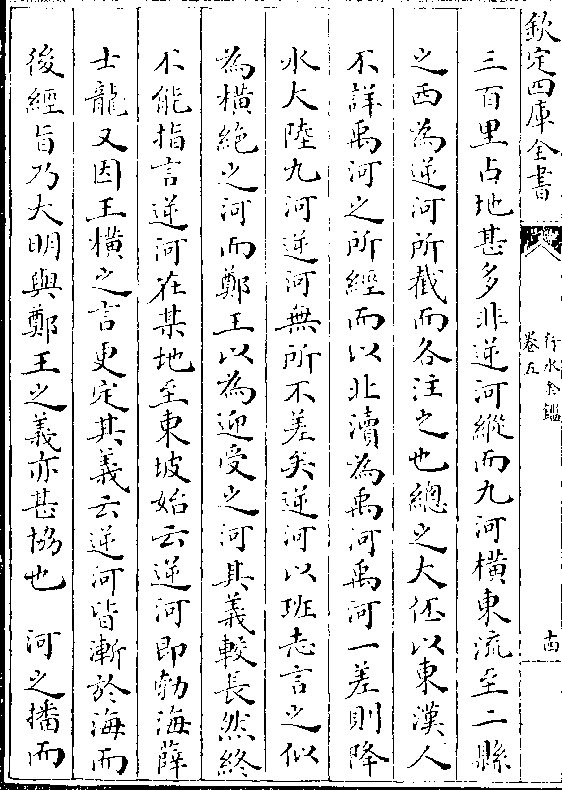 欽定四庫全書
行水金鑑
卷五
十四
三百里占地甚多非逆河縱而九河橫東流至二縣
之西為逆河所截而各注之也總之大伾以東漢人
不詳禹河之所經而以北瀆為禹河禹河一差則降
水大陸九河逆河無所不差矣逆河以班志言之似
為橫絶之河而鄭王以為迎受之河其義較長然終
不能指言逆河在某地至東坡始云逆河即勃海薛
士龍又因王橫之言更定其義云逆河皆漸於海而
後經旨乃大明與鄭王之義亦甚協也　河之播而